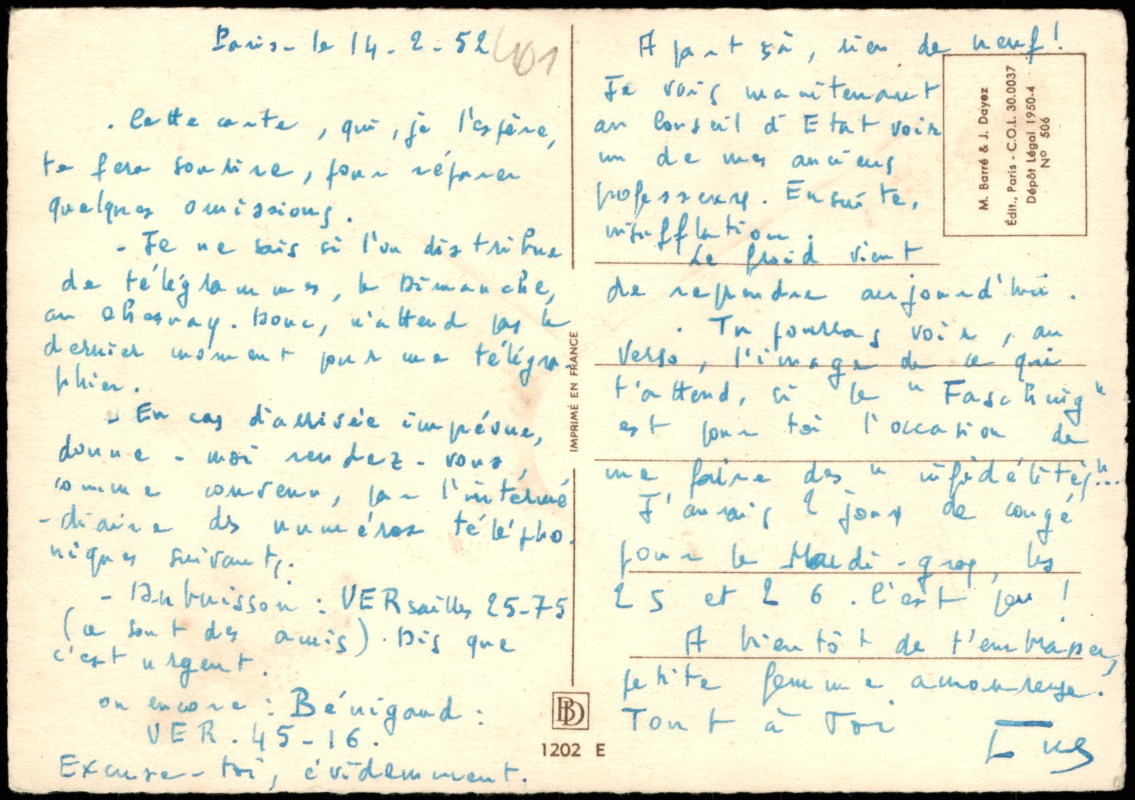 Paris - le 14 - 2 - 52
401
. Cette carte, qui, je l'espère,
te fera sourire, pour réparer
quelques omissions.
- Je ne sais si l'on distribue
de télégrammes, le Dimanche,
au Chesnay. Donc, n'attend pas le
dernier moment pour me télégra-
phier.
- En cas d'arrivée imprévue,
donne-moi rendez-vous,
comme convenu, par l'intermé
-diaire des numéros télépho-
niques suivants:
- Dubuisson : VERsailles 25-75
(ce sont des amis). Dis que
c'est urgent.
ou encore : Bénigaud :
VER. 45-16.
Excuse-toi, évidemment.
A part çà, rien de neuf!
Je vais maintenant
au Conseil d'Etat voir
un de mes anciens
professeurs. Ensuite,
insufflation.
Le froid vient
de reprendre aujourd'hui.
. Tu pourras voir, au
verso, l'image de ce qui
t'attend, si le "Fasching"
est pour toi l'occasion de
me faire des "infidélités"...
J'aurais 2 jours de congé
pour le Mardi-gras, les
25 et 26. C'est peu!
A bientôt de t'embrasser,
petite femme amoureuse.
Tout à Toi
M. Barré & J. Dayez
Édit., Paris - C.O.L. 30.0037
Dépôt Légal 1950-4
N° 506
IMPRIMÉ EN FRANCE
BD
1202 E